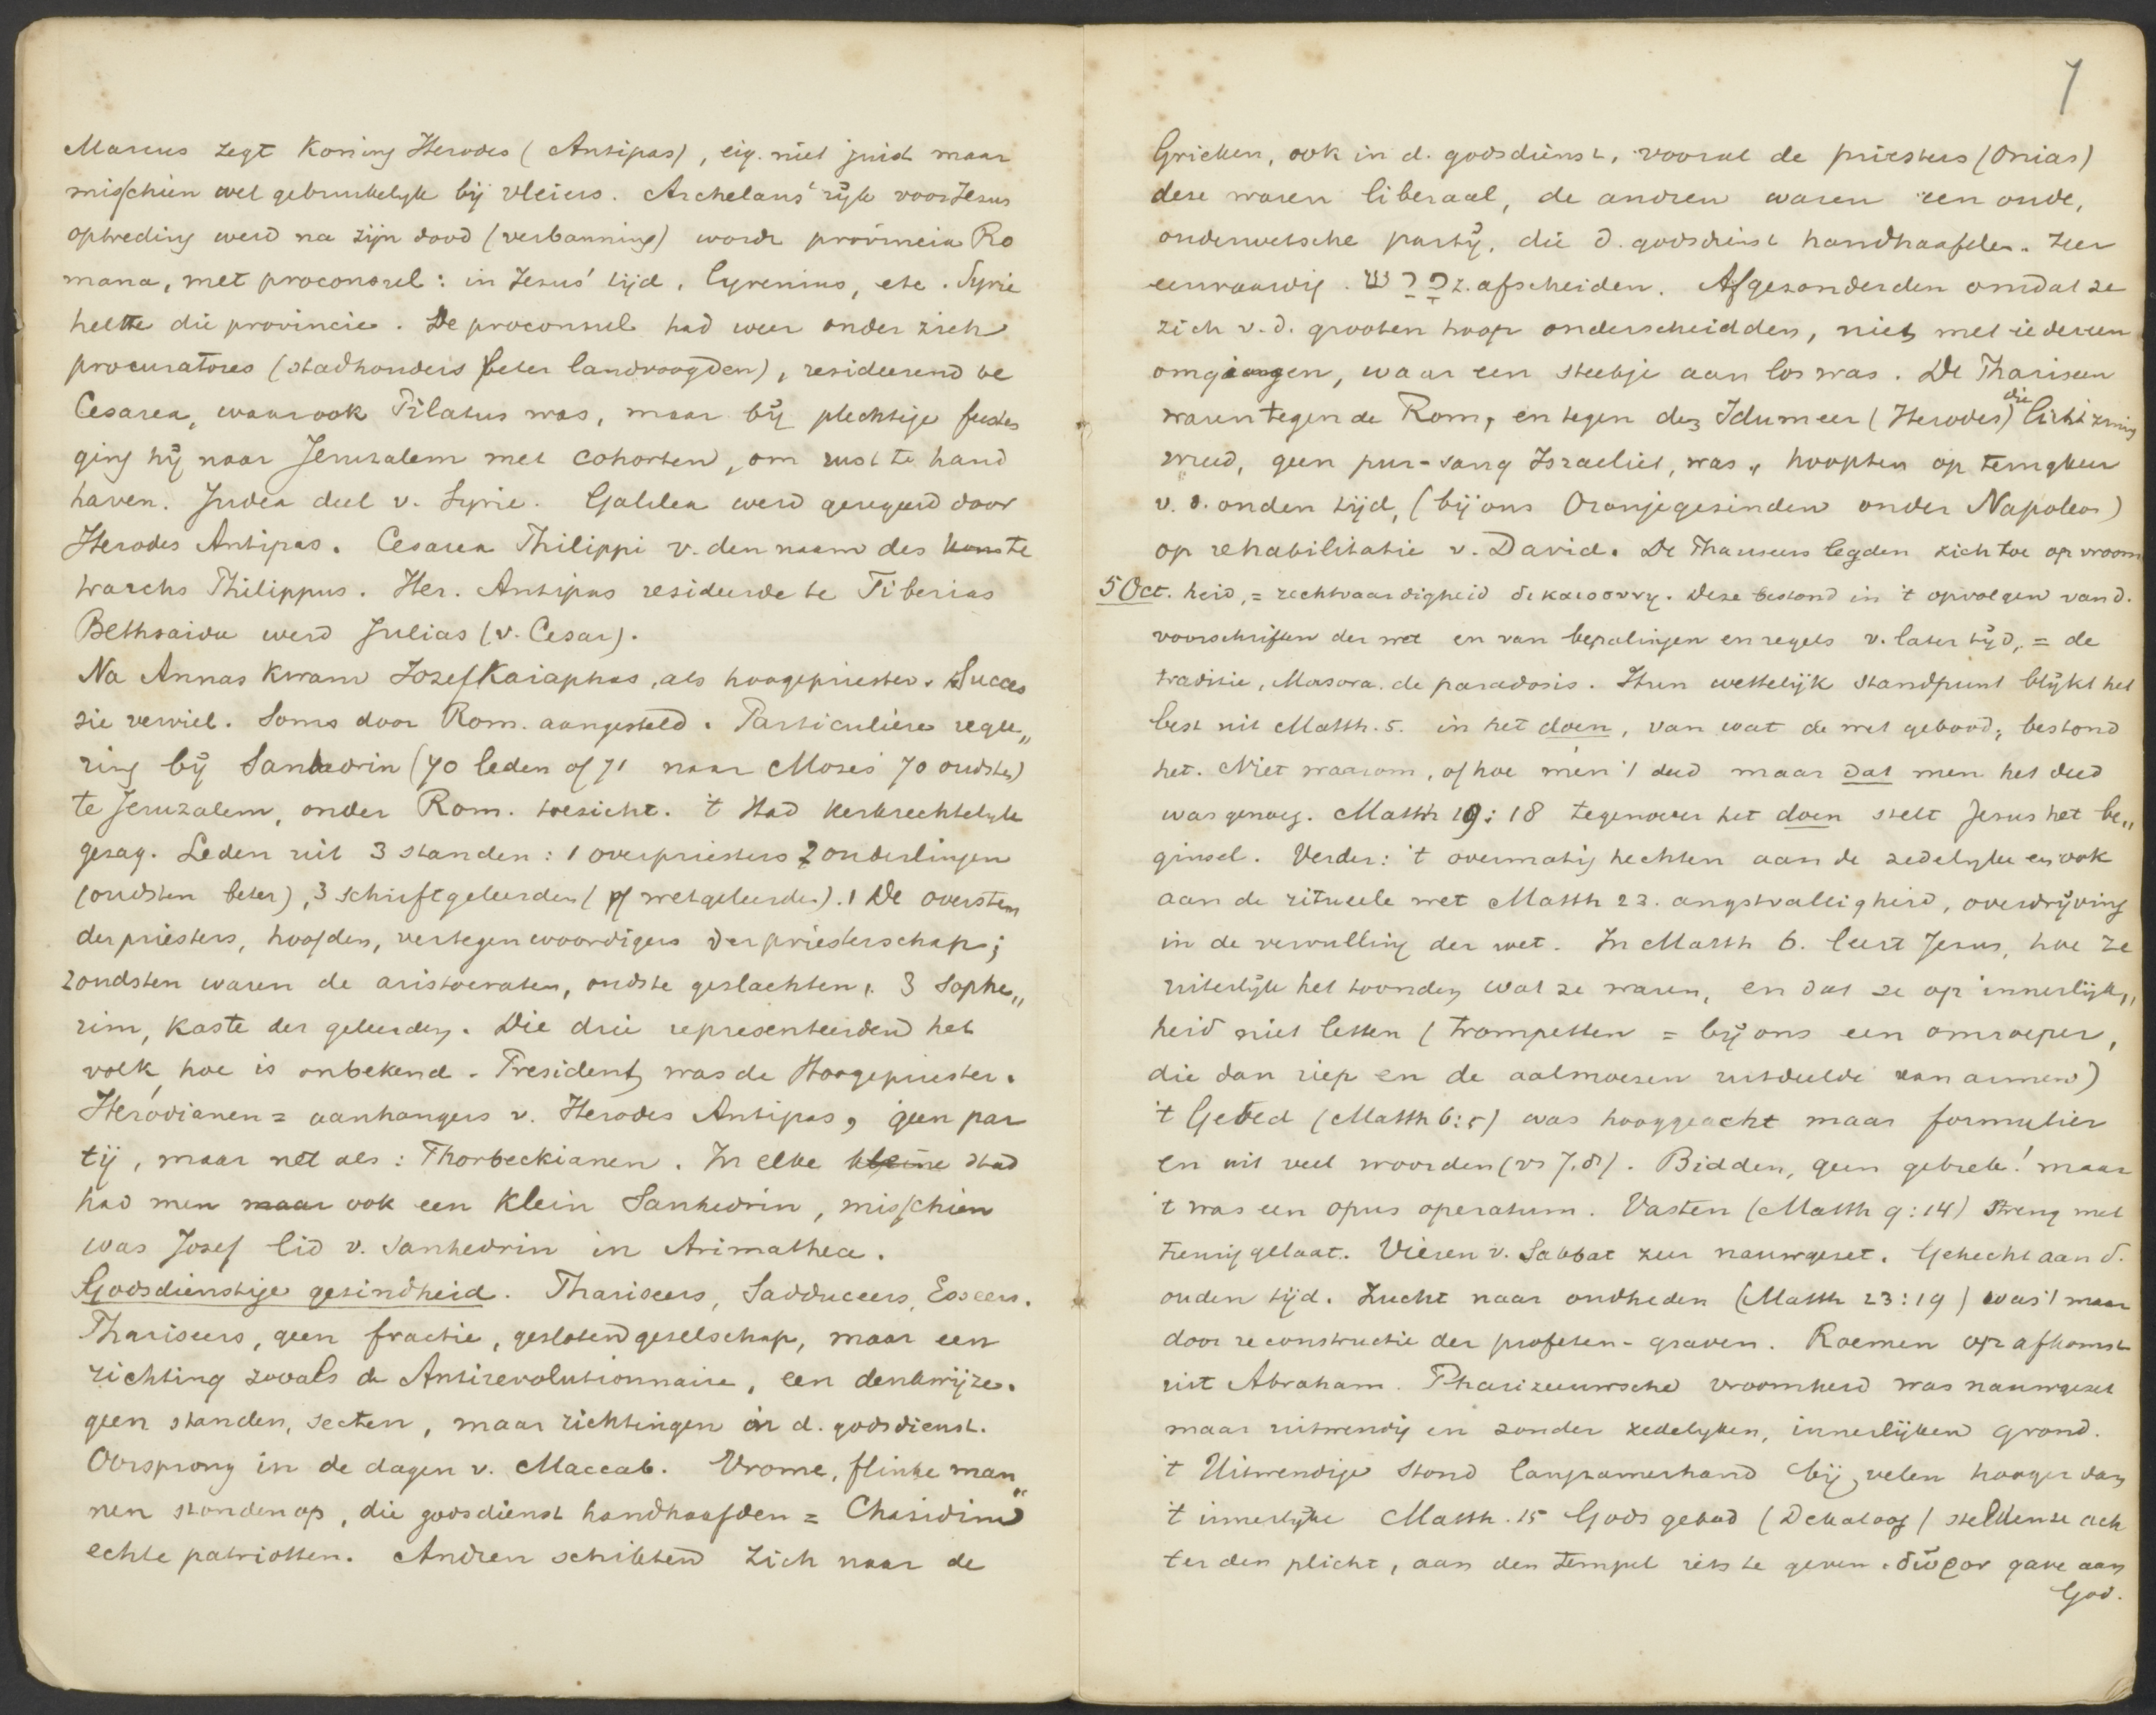 Marcus zegt Koning Herodes (Antipas), eig. niet juist maar
misschien wel gebruikelijk bij vleiers. Archelaus' rijk voor Jesus
optreding werd na zijn dood (verbanning) wordt provincia Ro
mana, met proconsul: in Jesus' tijd, Cyrenius, etc. Syrie
heette die provincie. De proconsul had weer onder zich
procuratores (stadhouders beter landvoogden), resideerend te
Cesarea, waar ook Pilatus was, maar bij plechtige feesten
ging hij naar Jeruzalem met cohorten, om rust te hand
haven. Judea deel v. Syrie. Galilea werd geregeerd door
Herodes Antipas. Cesarea Philippi v. den naam des te
trarchs Philippus. Her. Antipas resideerde te Tiberias
Bethsaida werd Julias (v. Cesar).
Na Annas kwam Jozef Kaiaphas, als hoogepriester. Succes
sie verviel. Soms door Rom. aangesteld. Particuliere regee„
ring bij Sanhedrin (70 leden of 71 naar Mozes 70 oudsten)
te Jeruzalem, onder Rom. toezicht. 't Had kerkrechtelijk
gezag. Leden uit 3 standen: 1 overpriesters 2 ouderlingen
(oudsten beter), 3 schriftgeleerden (of wetgeleerden). 1 De oversten
der priesters, hoofden, vertegenwoordigers der priesterschap;
2 oudsten waren de aristocraten, oudste geslachten, 3 Sophe„
rim, kaste der geleerden. Die drie representeerden het
volk, hoe is onbekend. President was de Hoogepriester.
Herodianen = aanhangers v. Herodes Antipas, geen par
tij, maar net als: Thorbeckianen. In elke kleine stad
had men maar ook een klein Sanhedrin, misschien
was Josef lid v. Sanhedrin in Arimathea.
Godsdienstige gezindheid. Phariseers, Sadduceers, Esseers.
Phariseers, geen fractie, gesloten gezelschap, maar een
richting zooals de Antirevolutionnaire, een denkwijze.
geen standen, secten, maar richtingen in d. godsdienst.
Oorsprong in de dagen v. Maccab. Vrome, flinke man„
nen stonden op, die godsdienst handhaafden = Chasidim
echte patriotten. Andren schikten zich naar de
7
Grieken, ook in d. godsdienst, vooral de priesters (Onias)
deze waren liberaal, de andren waren een oude,
ouderwetsche partij, die d. godsdienst handhaafden. Zeer
eenvoudig. z. afscheiden. Afgezonderden omdat ze
zich v. d. grooten hoop onderscheidden, niet met iedereen
omgingen, waar een steekje aan los was. De Phariseen
waren tegen de Rom, en tegen den Idumeer (Herodes) die lichtzinnig
wreed, geen pur-sang Israeliet, was, hoopten op terugkeer
v. d. ouden tijd, (bij ons Oranjegezinden onder Napoleon)
op rehabilitatie v. David. De Phariseers legden zich toe op vroom
5 Oct. heid, = rechtvaardigheid δικαιοσυνη. Deze bestond in 't opvolgen van d.
voorschriften der wet en van bepalingen en regels v. later tijd, = de
traditie, Masora, de paradosis. Hun wettelijk standpunt blijkt het
best uit Matth. 5. in het doen, van wat de wet gebood, bestond
het. Niet waarom, of hoe men 't deed maar dat men het deed
was genoeg. Matth 19:18 tegenover het doen stelt Jesus het be„
ginsel. Verder: 't overmatig hechten aan de zedelijke en ook
aan de ritueele wet Matth 23. angstvalligheid, overdrijving
in de vervulling der wet. In Matth 6. leert Jesus, hoe ze
uiterlijk het toonden wat ze waren, en dat ze op innerlijk„
heid niet letten (trompetten = bij ons een omroeper,
die dan riep en de aalmoezen uitdeelde aan armen)
't Gebed (Matth 6:5) was hooggeacht maar formulier
en uit veel woorden (vs 7,8). Bidden, geen gebrek! maar
't was een opus operatum. Vasten (Matth 9:14) streng met
treurig gelaat. Vieren v. Sabbat zeer nauwgezet. Gehecht aan d.
ouden tijd. Zucht naar oudheden (Matth 23:19) was 't maar
door reconstructie der profeten-graven. Roemen op afkomst
uit Abraham. Pharizeeuwsche vroomheid was nauwgezet
maar uitwendig en zonder zedelijken, innerlijken grond.
't Uitwendige stond langzamerhand bij velen hooger dan
't innerlijke Matth. 15 Gods gebod (Dekaloog) stelden ze ach
ter den plicht, aan den tempel iets te geven. δῶρον gave aan
God.